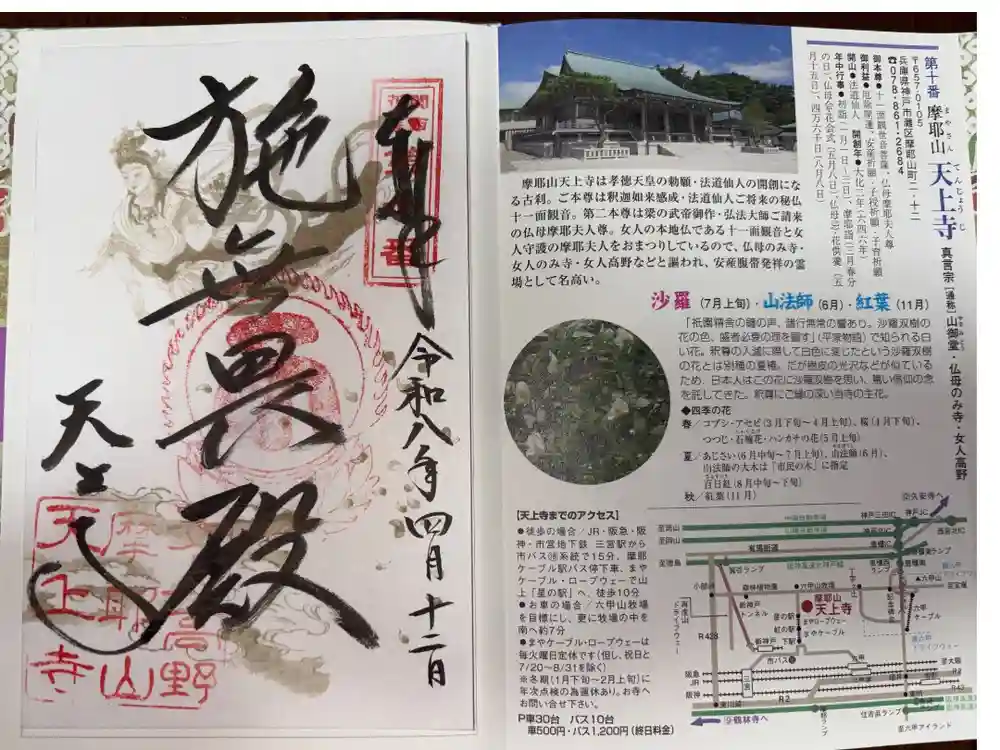 奉拝
施無畏殿
令和八年四月十二日
天上寺
天上寺
摩耶山
第十番 摩耶山 天上寺
まやさん
てんじょうじ
真言宗[通称]山御堂・仏母のみ寺・女人高野
〒657-0105
兵庫県神戸市灘区摩耶山町二-十二
☎078-861-2684
御本尊●十一面観世音菩薩、仏母摩耶夫人尊
御利益●厄除開運、安産祈願・子授祈願・子育祈願
開山●法道仙人 開創年●大化二年(六四六年)
年中行事●初詣(一月一日〜三日)、摩耶詣(三月春分
の日)、仏母会花会式(五月八日)、仏母忌・花供養(五
月十五日)、四万六千日(八月八日)
摩耶山天上寺は孝徳天皇の勅願・法道仙人の開創にな
る古刹。ご本尊は釈迦如来感成・法道仙人ご将来の秘仏
十一面観音。第二本尊は梁の武帝御作・弘法大師ご請来
の仏母摩耶夫人尊。女人の本地仏である十一面観音と女
人守護の摩耶夫人をおまつりしているので、仏母のみ寺・
女人のみ寺・女人高野などと謳われ、安産腹帯発祥の霊
場として名高い。
沙羅(7月上旬)・山法師(6月)・紅葉(11月)
「祇園精舎の鐘の声、諸行無常の響あり、沙羅双樹の
花の色、盛者必衰の理を顕す」(平家物語)で知られる白
い花。釈尊の入滅に際して白色に変じたという沙羅双樹
の花とは別種の夏椿。だが樹皮の光沢などが似ている
ため、日本人はこの花に沙羅双樹を思い、篤い信仰の念
を託してきた。釈尊にご縁の深い当寺の主花。
◆四季の花
春/コブシ・アセビ(3月下旬〜4月上旬)、桜(4月下旬)、
つつじ・石楠花・ハンカチの花(5月上旬)
夏/あじさい(6月中旬〜7月上旬)、山法師(6月)、
山法師の大木は「市民の木」に指定
百日紅(8月中旬〜下旬)
秋/紅葉(11月)
【天上寺までのアクセス】
●徒歩の場合/JR・阪急・阪
神・市営地下鉄 三宮駅から
市バス⑱系統で15分、摩耶
ケーブル駅バス停下車、まや
ケーブル・ロープウェーで山
上「星の駅」へ、徒歩10分
●お車の場合/六甲山牧場
を目標にし、更に牧場の中を
南へ約7分
●まやケーブル・ロープウェーは
毎火曜日定休です(但し、祝日と
7/20〜8/31を除く)
※冬期(1月下旬〜2月上旬)に
年次点検の為運休あり。お寺へ
お問い合せ下さい。
P車30台 バス10台
車500円・バス1,200円(終日料金)
至岡山
至岡山
至徳島
小部
箕谷ランプ
森林植物園
六甲山牧場
摩耶山
天上寺
星の駅
まやロープウェー
虹の駅
まやケーブル
新神戸
トンネル
新神戸
R428
市バス⑱
三宮
阪急
JR
阪神
R2
R2
R43
六甲
ケーブル
▲六甲山
至宝塚
至大阪
神戸三田IC
神戸JC
西宮北IC
有馬街道
住吉川ランプ
至六甲アイランド